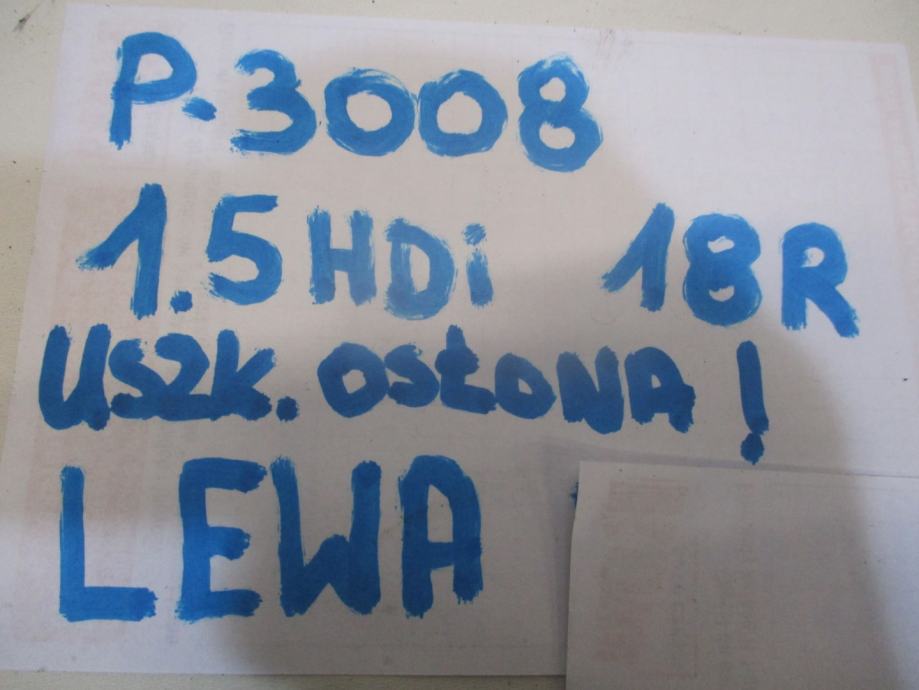 P.3008
1.5 HDi 18R
USZK. OSŁONA !
LEWA